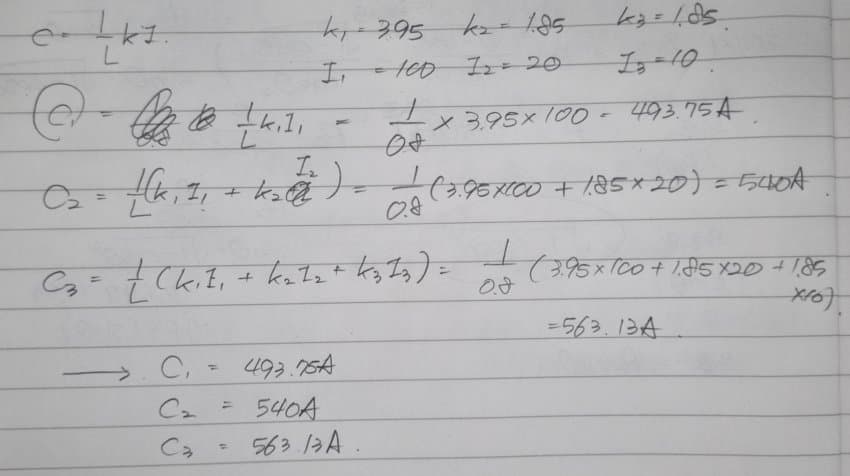 C = 1/L kI. k₁ = 3.95 k₂ = 1.85 k₃ = 1.85.
I₁ = 100 I₂ = 20 I₃ = 10.
C₁ = 1/L k₁I₁ = 1/0.8 × 3.95 × 100 = 493.75A.
C₂ = 1/L (k₁I₁ + k₂ I₂) = 1/0.8 (3.95×100 + 1.85×20) = 540A.
C₃ = 1/L (k₁I₁ + k₂I₂ + k₃I₃) = 1/0.8 (3.95×100 + 1.85×20 + 1.85
×10)
= 563.13A.
→ C₁ = 493.75A
C₂ = 540A
C₃ = 563.13A.